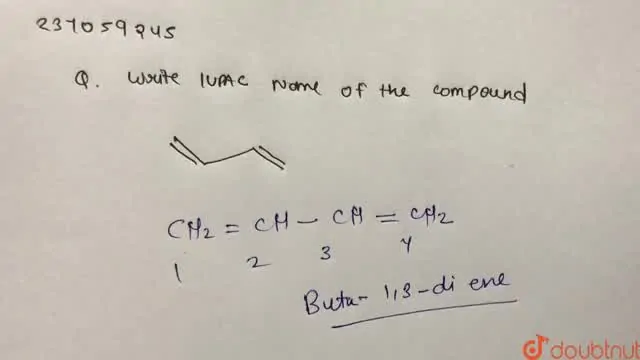 237059245
Q. Write IUPAC Name of the compound
CH2 = CH - CH = CH2
1 2 3 4
Buta- 1,3-di ene
doubtnut